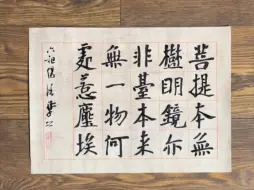 菩提本無
樹明鏡亦
非臺本来
無一物何
處惹塵埃
六祖偈語